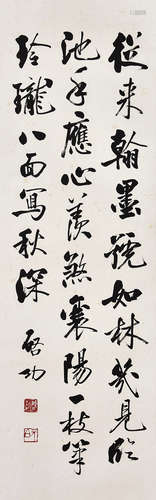 從来翰墨號如林幾見臨
池手應心羨煞襄陽一枝筆
玲瓏八面寫秋深
啓功